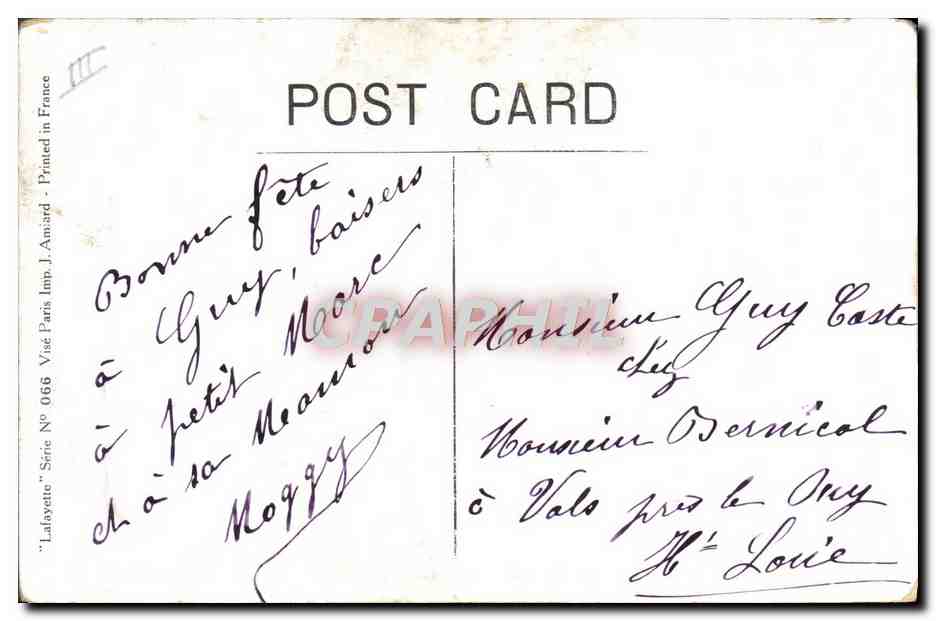 III
"Lafayette" Série Nº 066 Visé Paris Imp. J. Amiard - Printed in France
POST CARD
Bonne fête
à Guy, baisers
à petit Marc
et à sa Maman
Moggy
CPAPHIL
Monsieur Guy Coste
chez
Monsieur Bernicol
à Vals près le Puy
Hte Loire